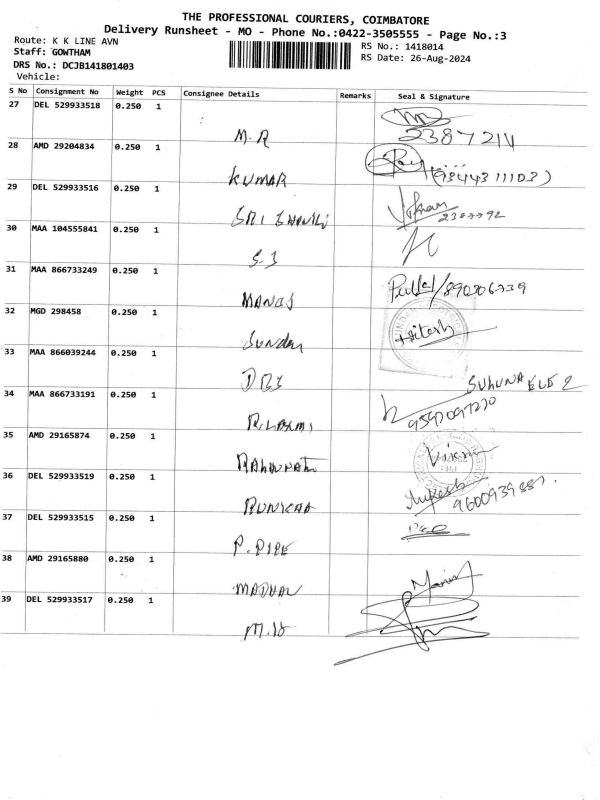 THE PROFESSIONAL COURIERS, COIMBATORE
Delivery Runsheet - MO - Phone No.:0422-3505555 - Page No.:3
Route: K K LINE AVN
RS No.: 1418014
Staff: GOWTHAM
RS Date: 26-Aug-2024
DRS No.: DCJB141801403
Vehicle:
S No Consignment No Weight PCS Consignee Details Remarks Seal & Signature
27 DEL 529933518 0.250 1
M.R
2387211
28 AMD 29204834 0.250 1
KUMAR
29 DEL 529933516 0.250 1
SRI
30 MAA 104555841 0.250 1
S.S
31 MAA 866733249 0.250 1
MANOJ
32 MGD 298458 0.250 1
Hitesh
Sundar
33 MAA 866039244 0.250 1
34 MAA 866733191 0.250 1
R.LAXMI
35 AMD 29165874 0.250 1
36 DEL 529933519 0.250 1
9600939887.
37 DEL 529933515 0.250 1
P. PIPE
38 AMD 29165880 0.250 1
MADHAV
39 DEL 529933517 0.250 1